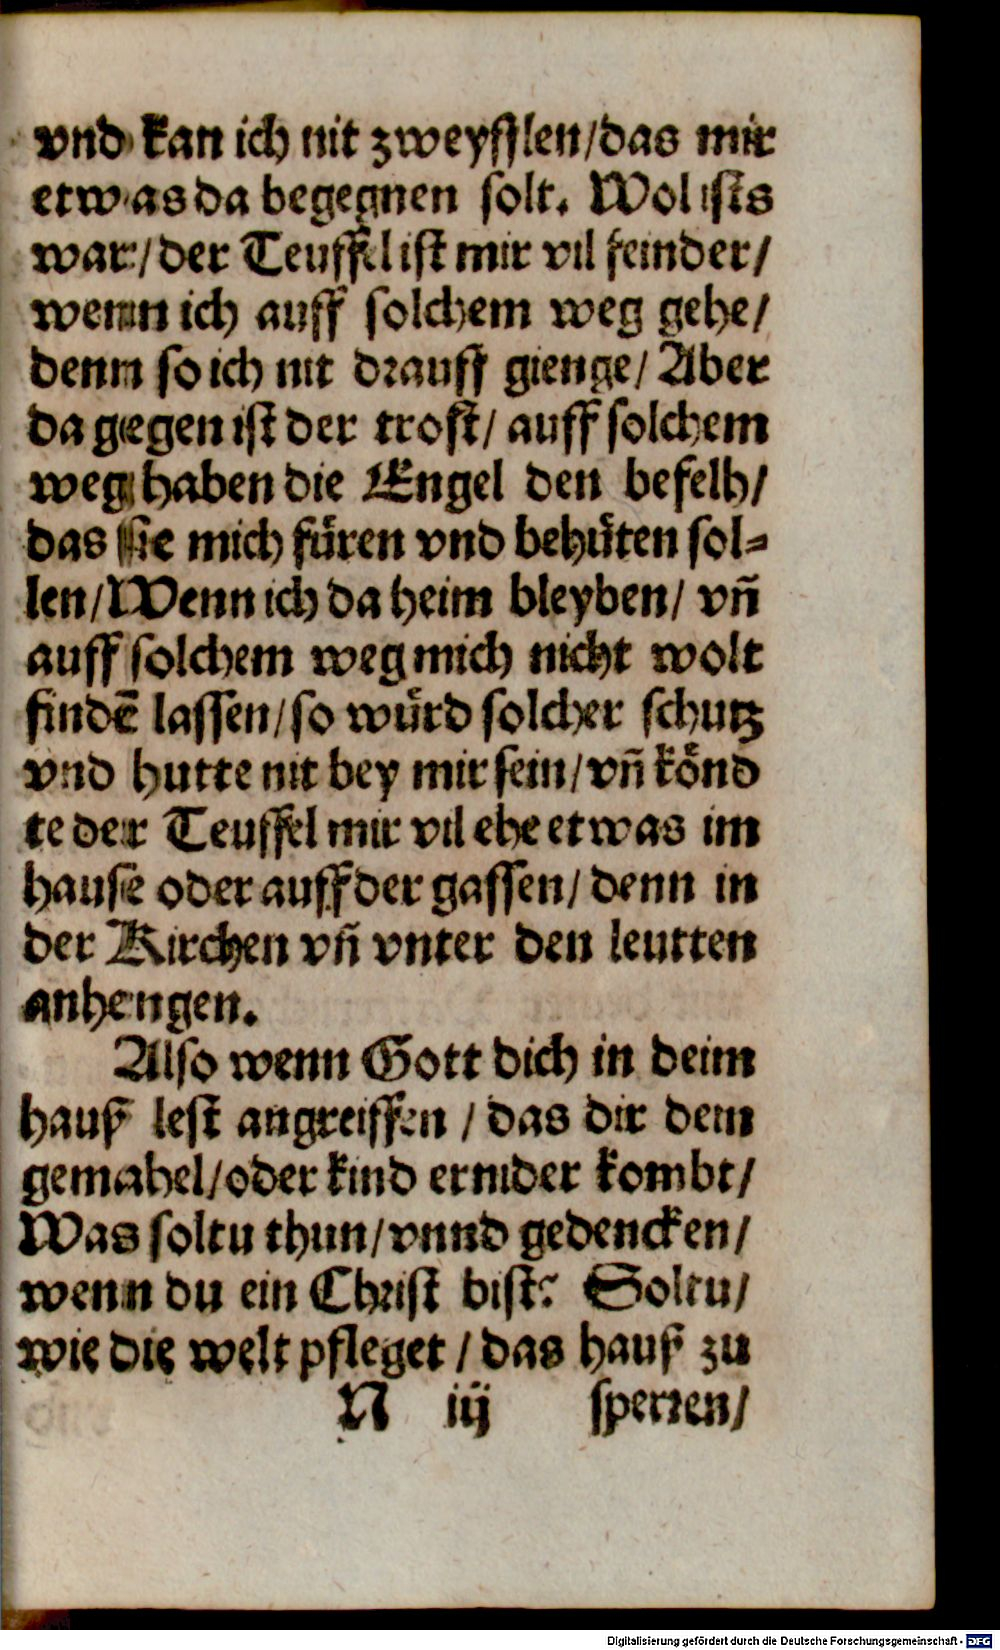 vnd kan ich nit zweyfflen/das mir
etwas da begegnen solt. Wol ists
war/der Teuffel ist mir vil feinder/
wenn ich auff solchem weg gehe/
denn so ich nit drauff gienge/ Aber
da gegen ist der trost/ auff solchem
weg haben die Engel den befelh/
das sie mich füren vnd behüten sol-
len/Wenn ich da heim bleyben/ vñ
auff solchem weg mich nicht wolt
findē lassen/so würd solcher schutz
vnd hutte nit bey mir sein/vñ könd
te der Teuffel mir vil ehe etwas im
hause oder auff der gassen/ denn in
der Kirchen vñ vnter den leutten
anhengen.
Also wenn Gott dich in deim
hauß lest angreiffen / das dir dein
gemahel/oder kind ernider kombt/
Was soltu thun/vnnd gedencken/
wenn du ein Christ bist? Soltu/
wie die welt pfleget / das hauß zu
N iij sperren/
Digitalisierung gefördert durch die Deutsche Forschungsgemeinschaft - DFG